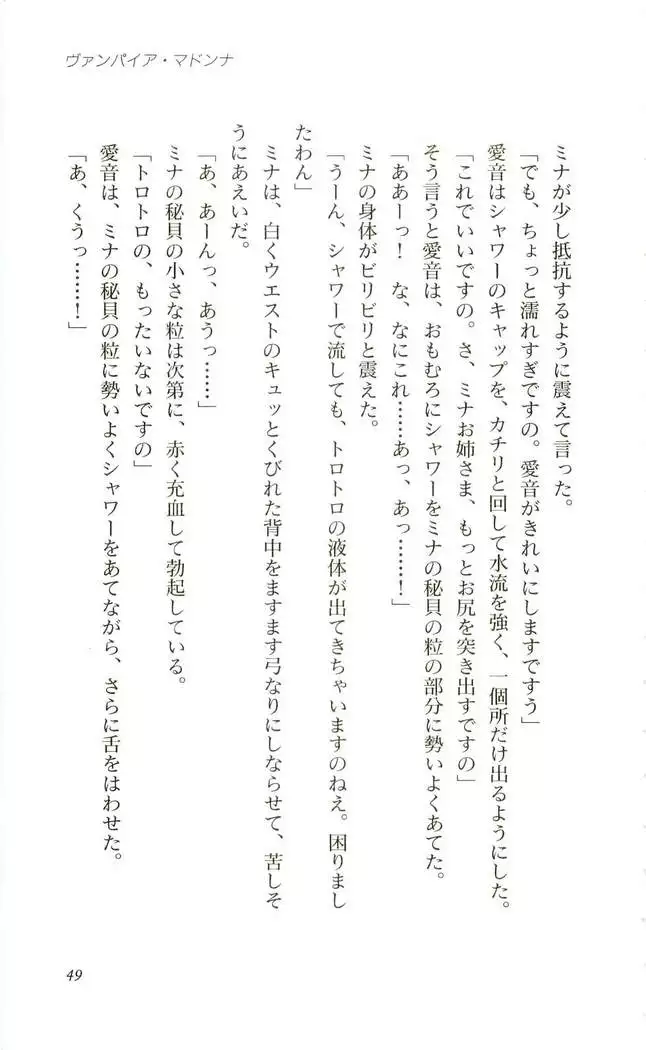 ヴァンパイア・マドンナ
ミナが少し抵抗するように震えて言った。
「でも、ちょっと濡れすぎですの。愛音がきれいにしますですう」
愛音はシャワーのキャップを、カチリと回して水流を強く、一個所だけ出るようにした。
「これでいいですの。さ、ミナお姉さま、もっとお尻を突き出すですの」
そう言うと愛音は、おもむろにシャワーをミナの秘貝の粒の部分に勢いよくあてた。
「ああーっ！　な、なにこれ……あっ、あっ………！」
ミナの身体がビリビリと震えた。
「うーん、シャワーで流しても、トロトロの液体が出てきちゃいますのねえ。困りまし
たわん」
ミナは、白くウエストのキュッとくびれた背中をますます弓なりにしならせて、苦しそ
うにあえいだ。
「あ、あーんっ、あうっ……」
ミナの秘貝の小さな粒は次第に、赤く充血して勃起している。
「トロトロの、もったいないですの」
愛音は、ミナの秘貝の粒に勢いよくシャワーをあてながら、さらに舌をはわせた。
「あ、くうっ………！」
49